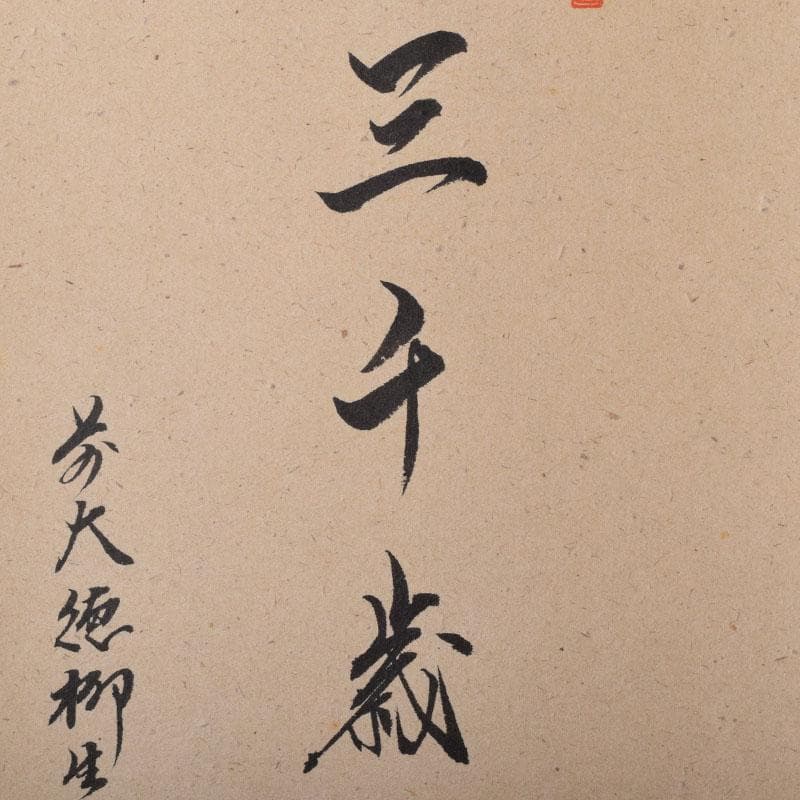 三千歳
前大徳柳生